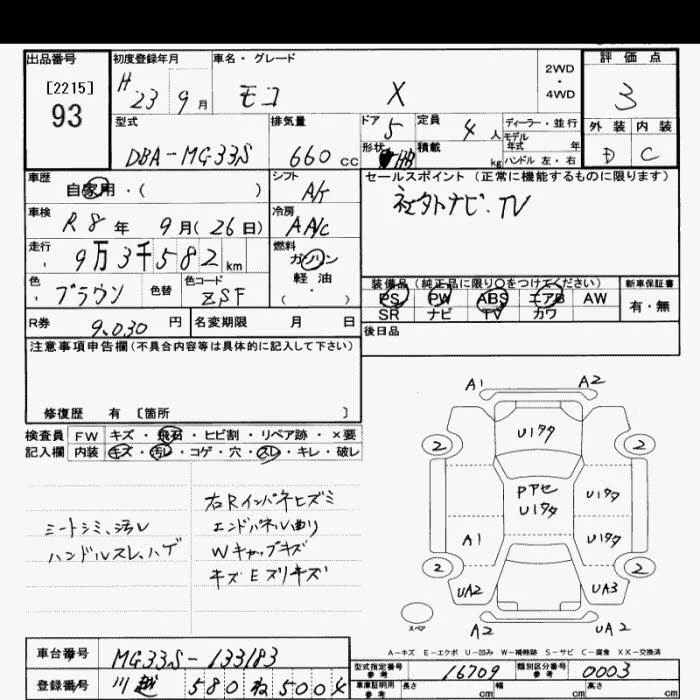 出品番号 初度登録年月 車名・グレード 2WD・4WD 評価点
[2215] 93 H 23 9月 モコ X 3
型式 排気量 ドア 定員 ディーラー・並行 外装 内装
DBA-MG33S 660cc 5 4人 モデル年式 年 D C
形状 HB 積載 kg ハンドル 左・右
車歴 自家用・( ) シフト A/t セールスポイント (正常に機能するものに限ります)
車検 R8年 9月(26日) 冷房 AA/c 社外ナビ・TV
走行 9万3千582km 燃料 ガソリン
軽油・( )
色 ブラウン 色替 色コード ZSF
装備品(純正品に限り○をつけてください) 新車保証書
PS PW ABS エアB AW 有・無
SR ナビ TV カワ
R券 9,030円 名変期限 月 日 後日品
注意事項申告欄(不具合内容等は具体的に記入して下さい)
修復歴 有 [箇所 ]
検査員 FW キズ・飛石・ヒビ割・リペア跡・×要
記入欄 内装 キズ・汚レ・コゲ・穴・スレ・キレ・破レ
シートシミ、汚レ
ハンドルスレ、ハゲ
右Rインパネヒズミ
エンドパネル曲り
Wキャップキズ
キズEズリキズ
A1 A2
U1タタ
2 2
Pアセ
U1タタ U1タタ
A1 U1タタ
2 2
UA2 UA3
スペア A2 UA2
A-キズ E-エクボ U-凹み W-補修跡 S-サビ C-腐食 XX-交換済
車台番号 MG33S-133183
登録番号 川越 580 ね 5004
型式指定番号 参考 16709 類別区分番号 参考 0003
車庫証明用 参考 長さ cm 幅 cm 高さ cm